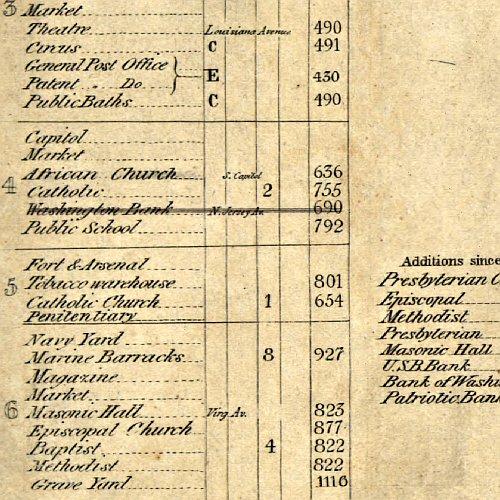 3 Market
Theatre Louisiana Avenue 490
Circus C 491
General Post Office E 430
Patent " Do
Public Baths C 490
Capitol
Market
African Church S. Capitol 636
4 Catholic 2 755
Washington Bank N. Jersey Av. 690
Public School 792
Fort & Arsenal
5 Tobacco warehouse 801
Catholic Church 1 654
Penitentiary
Navy Yard
Marine Barracks 8 927
Magazine
Market
6 Masonic Hall Virg. Av. 823
Episcopal Church 877
Baptist 4 822
Methodist 822
Grave Yard 1116
Additions since
Presbyterian C
Episcopal
Methodist
Presbyterian
Masonic Hall
U.S.B. Bank
Bank of Washi
Patriotic Bank